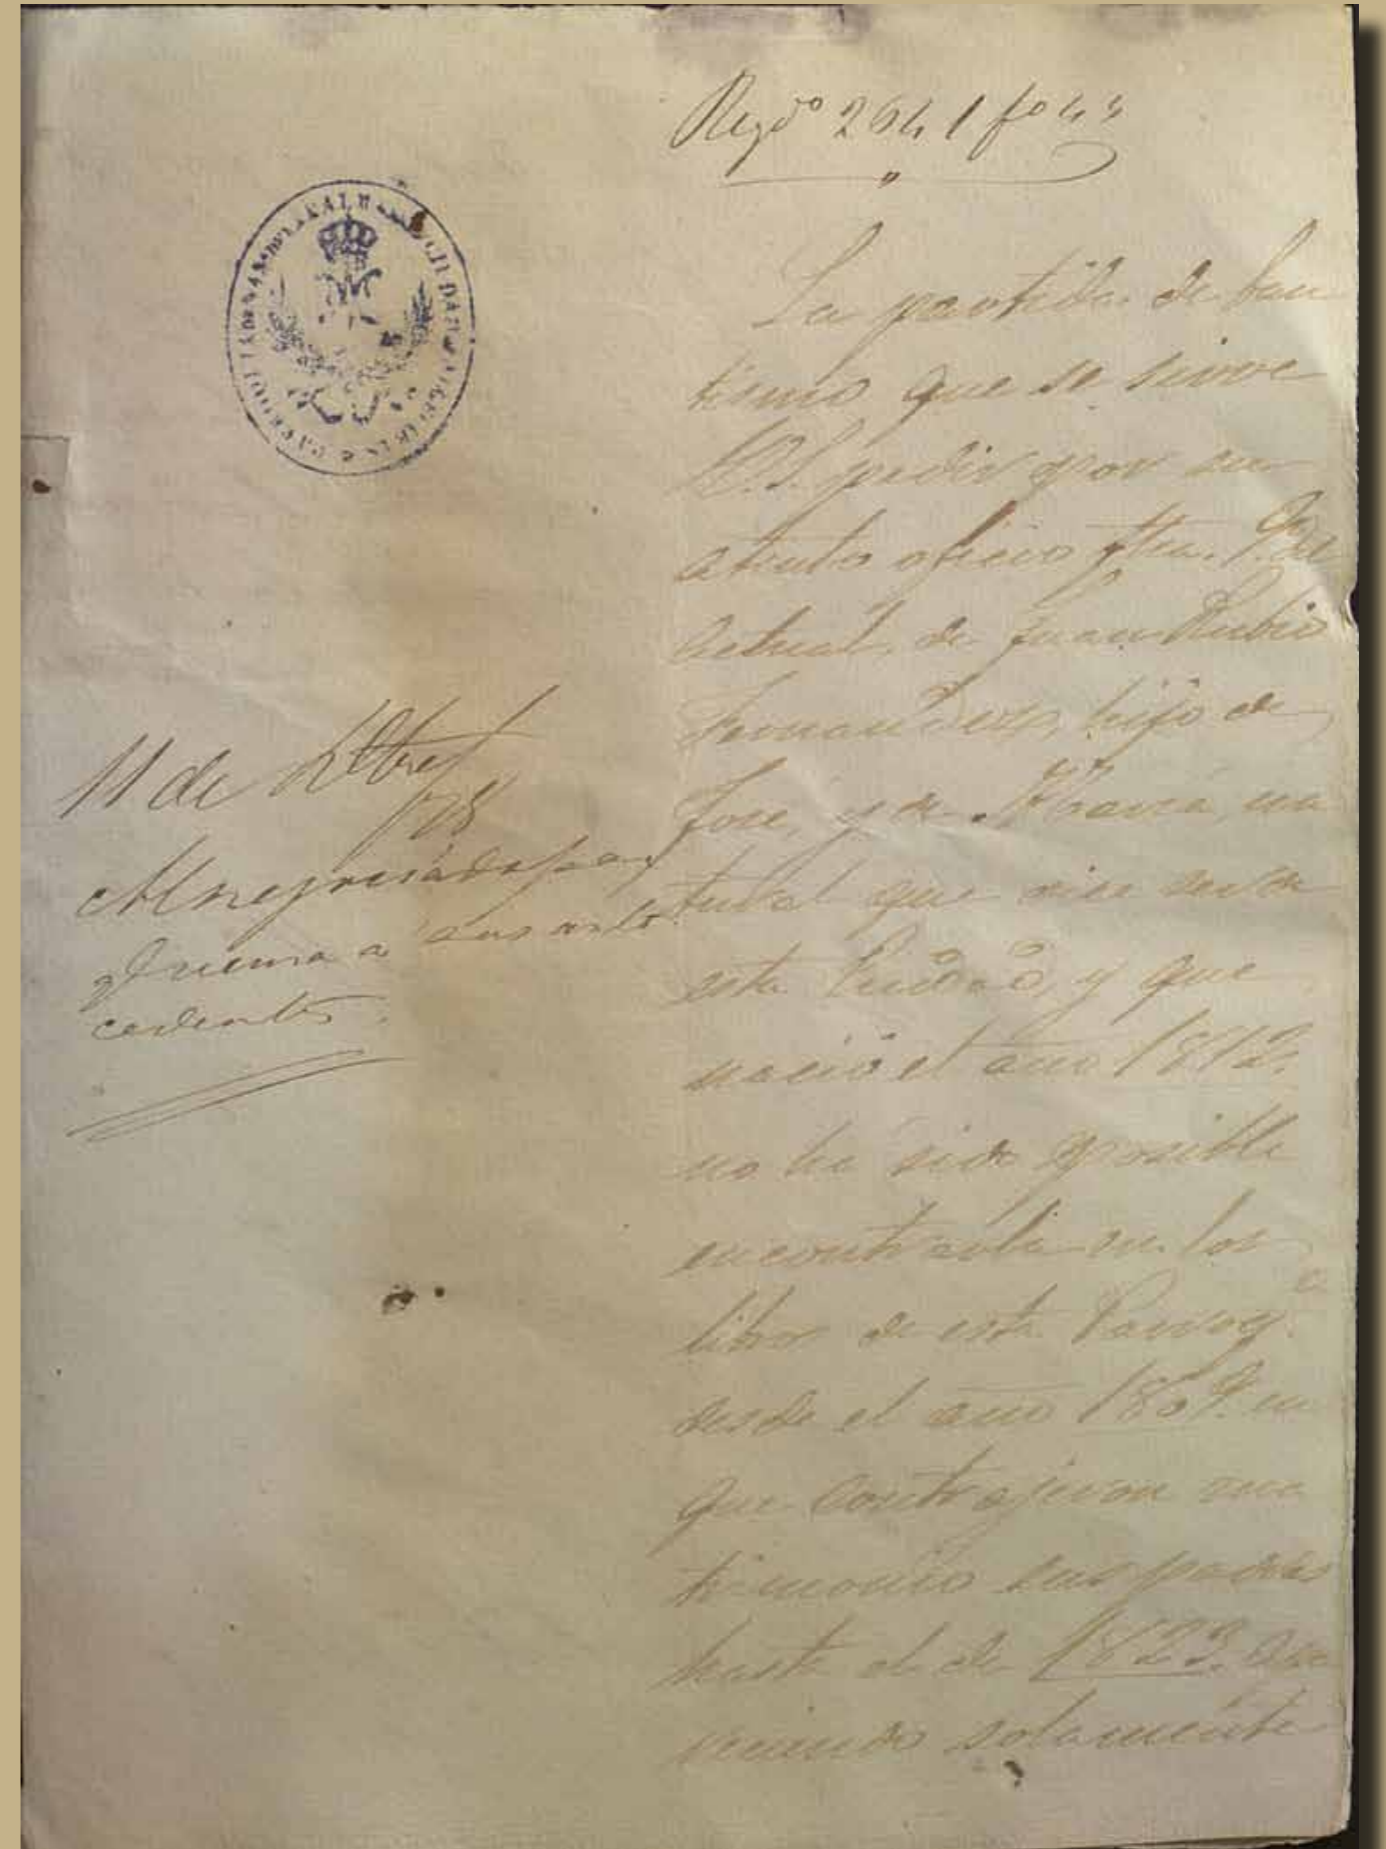 Regdo 2641 fo 44
La partida de bau
tismo que se sirve
V.S. pedir por su
atento oficio fha. 9. del
actual, de Juan Rubio
Fernandez, hijo de
José, y de Maria, na
tural que dice ser de
esta Ciudad, y que
nació el año 1812.
no ha sido posible
encontrarla en los
libros de esta Parroqa.
desde el año 1809. en
que contrajeron ma
trimonio sus padres
hasta el de 1823.
solamente
11 de
78
Al negociado pa
q. se una a sus ante
cedentes.